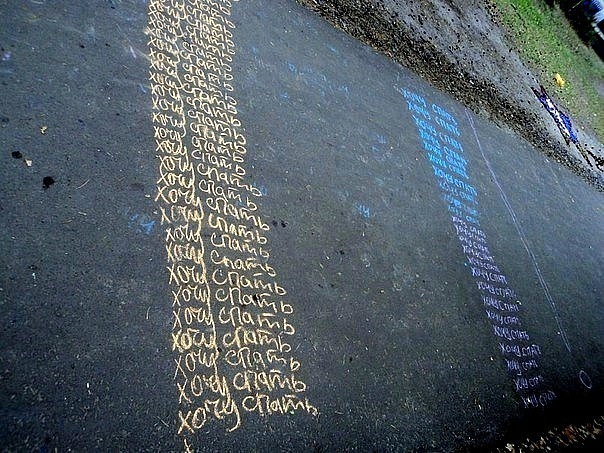 хочу спать
хочу спать
хочу спать
хочу спать
хочу спать
хочу спать
хочу спать
хочу спать
хочу спать
хочу спать
хочу спать
хочу спать
хочу спать
хочу спать
хочу спать
хочу спать
хочу спать
хочу спать
хочу спать
хочу спать
хочу спать
хочу спать
хочу спать
хочу спать
хочу спать
хочу спать
хочу спать
хочу спать
хочу спать
хочу спать
хочу спать
хочу спать
хочу спать
хочу спать
хочу спать
хочу спать
хочу спать
хочу спать
хочу спать
хочу спать
хочу спать
хочу спать
хочу спать
хочу спать
хочу спать
хочу спать
хочу спать
хочу спать